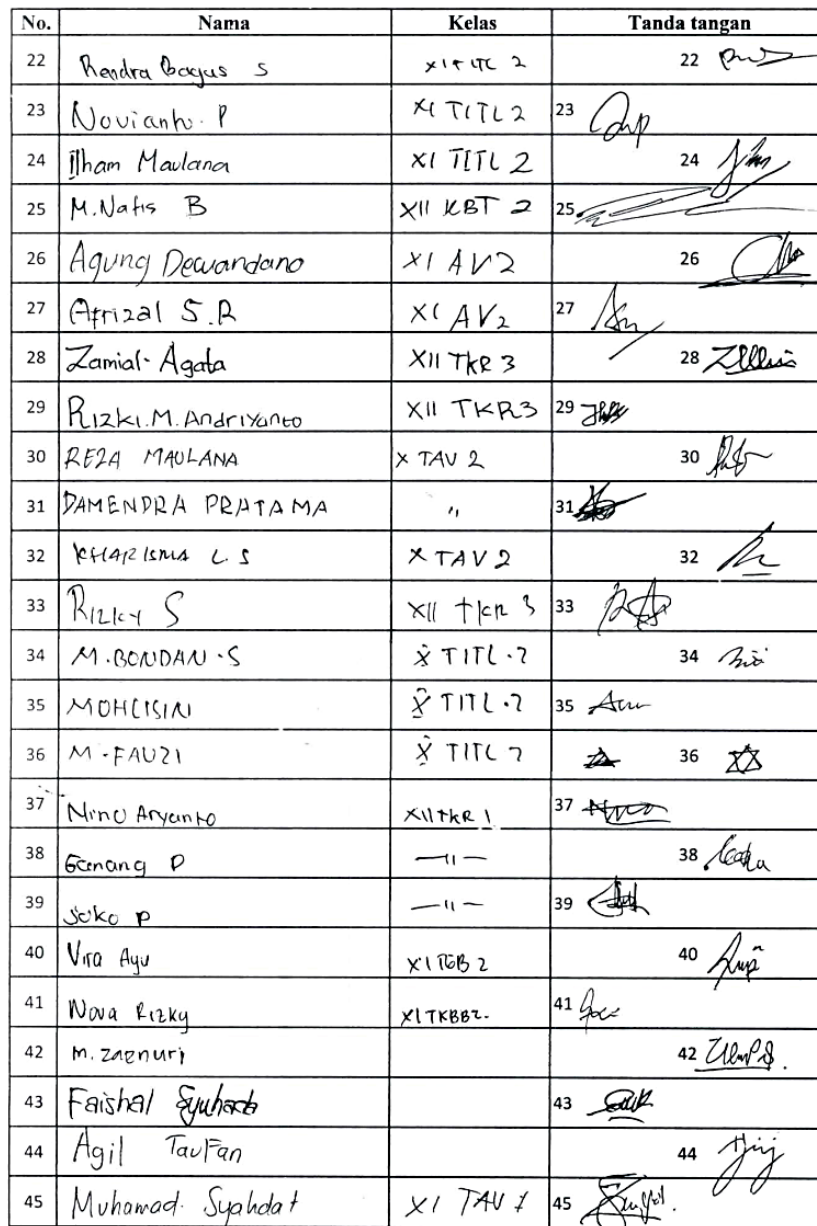 No. Nama Kelas Tanda tangan
22 Rendra Bagus S XI TITL 2 22
23 Novianto. P XI TITL 2 23
24 Ilham Maulana XI TITL 2 24
25 M. Nafis B XII KBT 2 25
26 Agung Dewandano XI AV2 26
27 Afrizal S.R XI AV2 27
28 Zamial- Agata XII TKR 3 28
29 Rizki.M.Andriyanto XII TKR3 29
30 REZA MAULANA X TAV 2 30
31 DAMENDRA PRATAMA " 31
32 KHARISMA L S X TAV 2 32
33 Rizky S XII TKR 3 33
34 M.BONDAN.S X TITL.2 34
35 X TITL.2 35
36 M.FAUZI X TITL 2 36
37 Nino Aryanto XII TKR 1 37
38 Genang P —"— 38
39 Joko P —"— 39
40 Vira Ayu 40
41 Nova Rizky 41
42 M. Zaenuri 42
43 Faishal Syuhada 43
44 Agil Taufan 44
45 Muhamad. Syahdat XI TAV 1 45